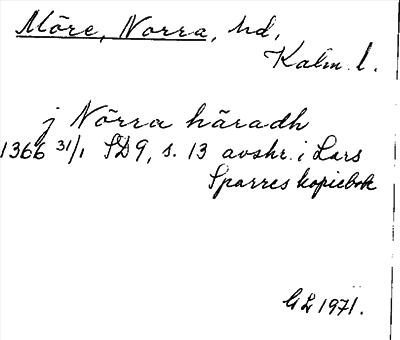 Möre, Norra, hd,
Kalm. l.
j Nörra häradh
1366 31/1 SD 9, s. 13 avskr. i Lars
Sparres kopiebok
GL 1971.